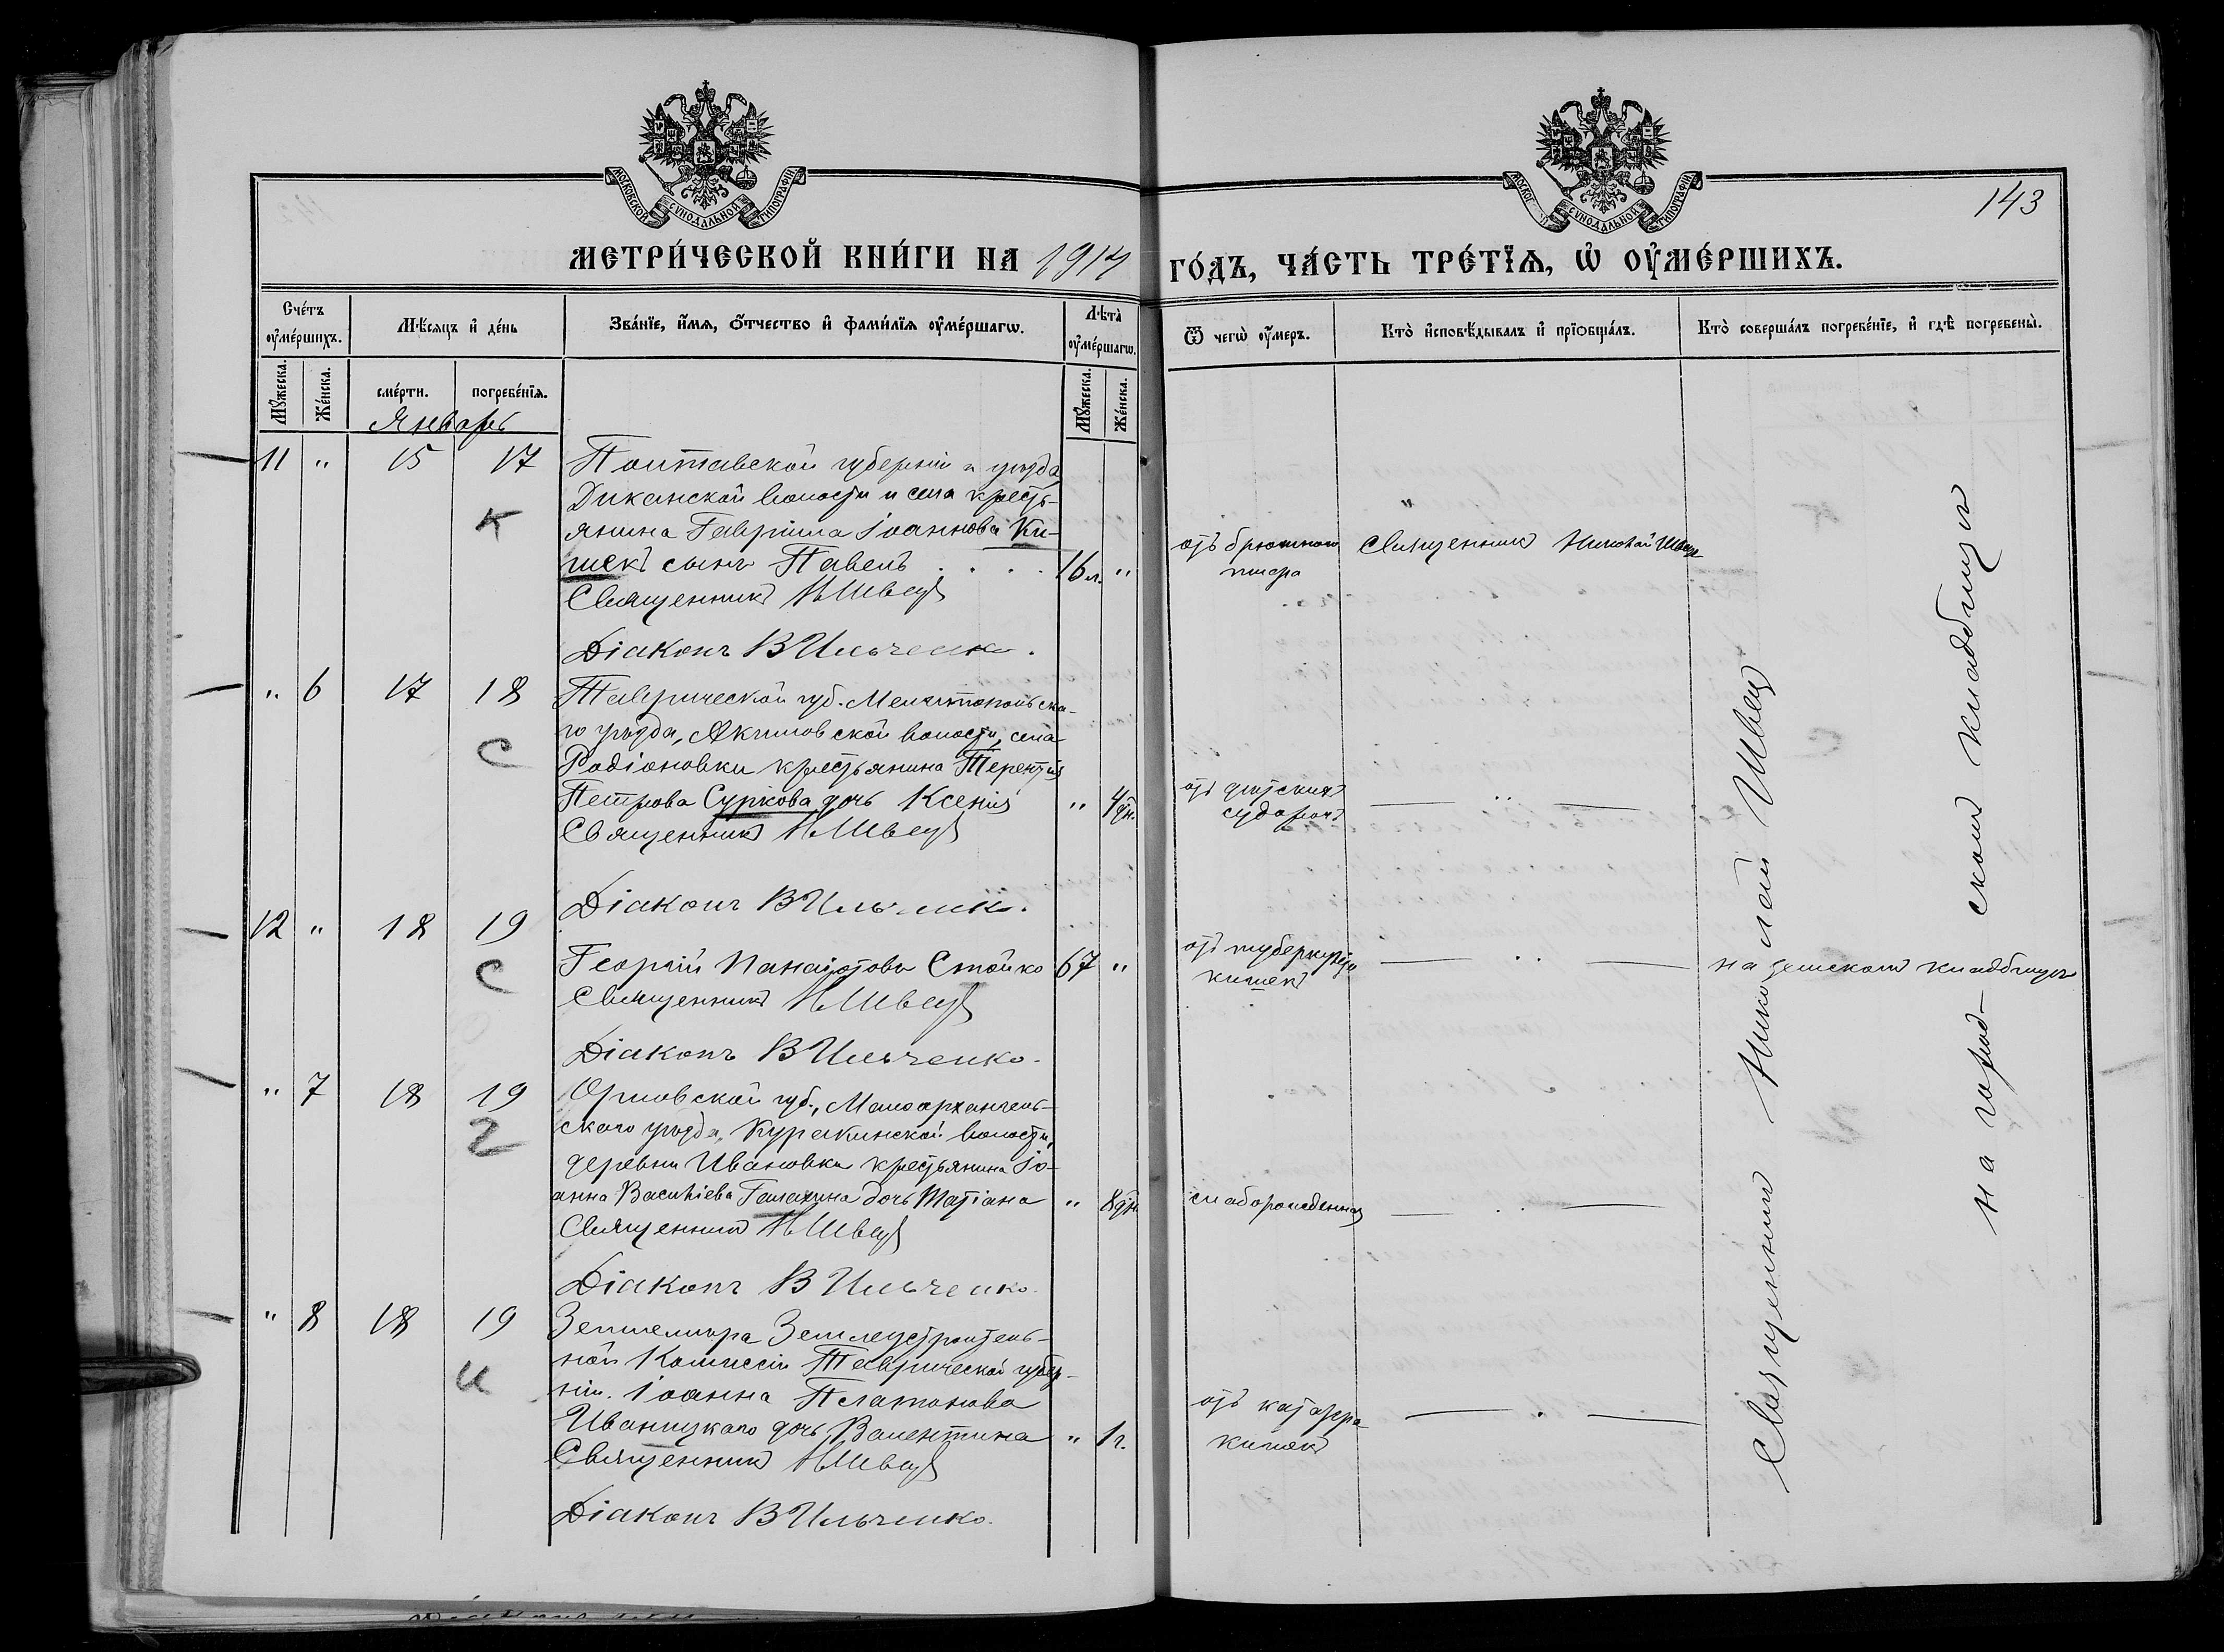 МОСКОВСКОЙ СѴНОДАЛЬНОЙ ТИПОГРАФІИ
МОСКОВ СѴНОДАЛЬНОЙ ТИПОГРАФІИ
143
МЕТРИ́ЧЕСКОЙ КНИ́ГИ НА 1914 ГО́ДЪ, ЧА́СТЬ ТРЕ́ТЇѦ, Ѡ҆ ОУ҆МЕ́РШИХЪ.
Сче́тъ оу҆ме́ршихъ.
Мꙋ́жеска.
Же́нска.
Мѣ́сѧцъ и҆ де́нь
сме́рти.
погребе́нїѧ.
Зва́нїе, и҆́мѧ, ѻ҆́тчество и҆ фами́лїѧ оу҆ме́ршагѡ.
Лѣ́та̀ оу҆ме́ршагѡ.
Мꙋ́жеска.
Же́нска.
Ѿ чегѡ̀ оу҆́меръ.
Кто̀ и҆сповѣ́дывалъ и҆ прїѡбща́лъ.
Кто̀ соверша́лъ погребе́нїе, и҆ гдѣ̀ погребены̀.
Январь
11 " 15 17
К
Полтавской губерніи и уѣзда
Диканской волости и села кресть-
янина Гавріила Іоаннова Ки-
шекъ сынъ Павелъ . . . . 16 л. "
Священникъ Н Швецъ
Діаконъ В Ильченко.
отъ брюшного
тифа
Священникъ Николай Швецъ
" 6 17 18
С
Таврической губ. Мелитопольска-
го уѣзда, Акимовской волости, села
Родіоновки крестьянина Терентія
Петрова Суркова дочь Ксенія " 4 дн.
Священникъ Н Швецъ
Діаконъ В Ильченко.
отъ дѣтскихъ
судорогъ
— " —
12 " 18 19
С
Георгій Панаіотовъ Стойко 67 "
Священникъ Н Швецъ
Діаконъ В Ильченко.
отъ туберкулёза
кишекъ
— " —
на земскомъ кладбищѣ
" 7 18 19
Г
Орловской губ., Малоархангель-
скаго уѣзда, Куракинской волости,
деревни Ивановки крестьянина Іо-
анна Василіева Галахина дочь Татіана " 8 дн.
Священникъ Н Швецъ
Діаконъ В Ильченко.
слаборожденная
— " —
" 8 18 19
И
Землемѣра Землеустроитель-
ной Комиссіи Таврической губер-
ніи Іоанна Платонова
Иваницкаго дочь Валентина " 1 г.
Священникъ Н Швецъ
Діаконъ В Ильченко.
отъ катарра
кишекъ
— " —
Священникъ Николай Швецъ
на город-
скомъ кладбищѣ